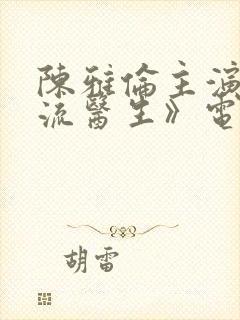 陳雅倫主演
流醫生》電
胡雷